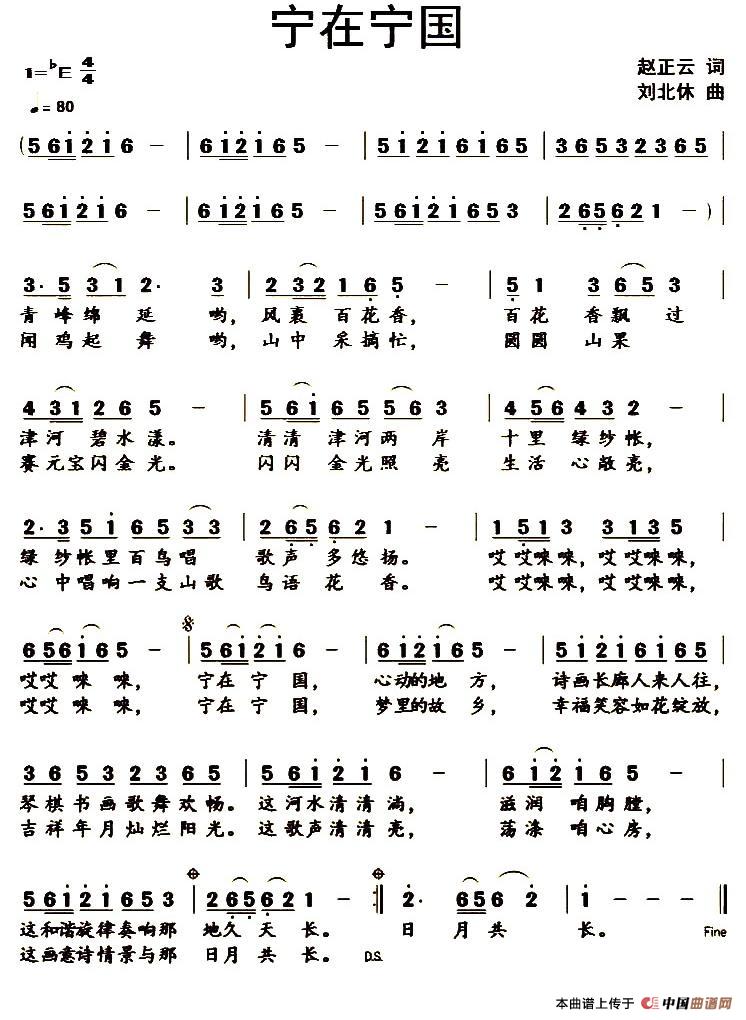 宁在宁国
1=♭E 4/4
赵正云 词
♩=80
刘北休 曲
(5 6 1 2 1 6 - | 6 1 2 1 6 5 - | 5 1 2 1 6 1 6 5 | 3 6 5 3 2 3 6 5 |
5 6 1 2 1 6 - | 6 1 2 1 6 5 - | 5 6 1 2 1 6 5 3 | 2 6 5 6 2 1 - ) |
3· 5 3 3 1 2· 3 | 2 3 2 1 6 5 - | 5 1 3 6 5 3 |
青峰绵延哟，风裹百花香， 百花香飘过
闻鸡起舞哟，山中采摘忙， 圆圆山果
4 3 1 2 6 5 - | 5 6 1 6 5 5 6 3 | 4 5 6 4 3 2 - |
津河碧水漾。 清清津河两岸 十里绿纱帐，
赛元宝闪金光。 闪闪金光照亮 生活心敞亮，
2· 3 5 1 6 5 3 3 | 2 6 5 6 2 1 - | 1 5 1 3 3 1 3 5 |
绿纱帐里百鸟唱 歌声多悠扬。 哎哎唻唻，哎哎唻唻，
心中唱响一支山歌 鸟语花香。 哎哎唻唻，哎哎唻唻，
6 5 6 6 1 6 5 - | 5 6 1 2 1 6 - | 6 1 2 1 6 5 - | 5 1 2 1 6 1 6 5 |
哎哎唻唻， 宁在宁国， 心动的地方， 诗画长廊人来人往，
哎哎唻唻， 宁在宁国， 梦里的故乡， 幸福笑容如花绽放，
3 6 5 3 2 3 6 5 | 5 6 1 2 1 6 - | 6 1 2 1 6 5 - |
琴棋书画歌舞欢畅。这河水清清淌， 滋润咱胸膛，
吉祥年月灿烂阳光。这歌声清清亮， 荡涤咱心房，
5 6 1 2 1 6 5 3 | 2 6 5 6 2 1 - :| 2· 6 6 5 6 2 | 1 - - - ‖
这和谐旋律奏响那 地久天长。 日月共长。 Fine
这画意诗情景与那 日月共长。 D.S.
本曲谱上传于 中国曲谱网